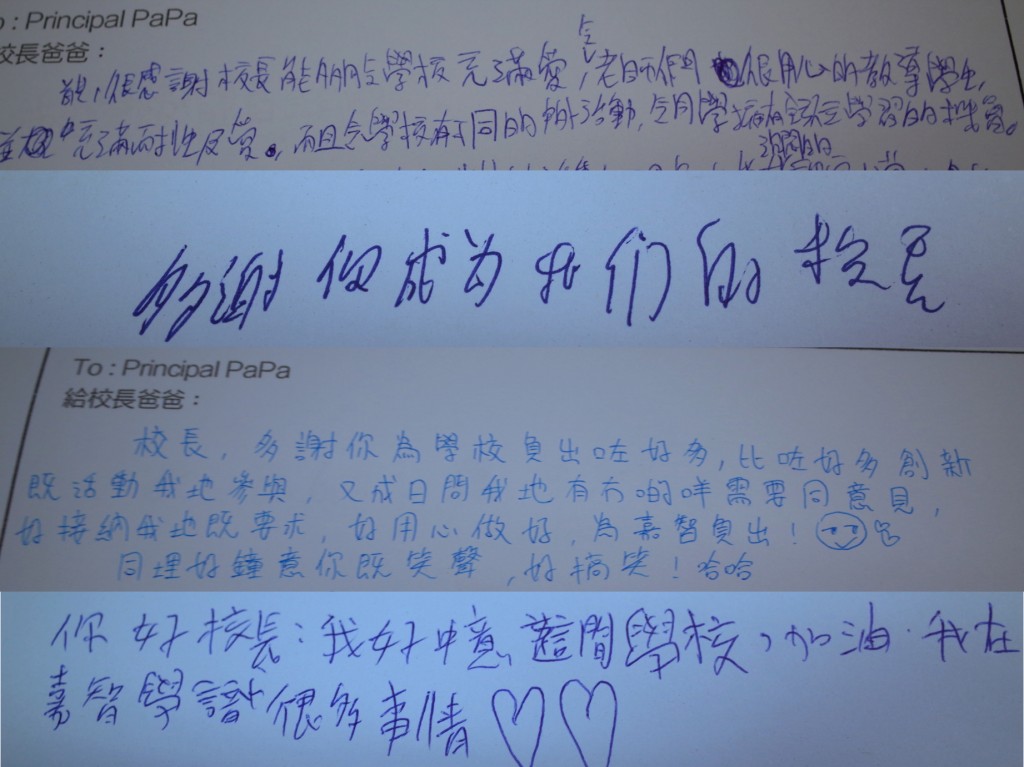 To : Principal PaPa
校長爸爸：
很感謝校長能夠令學校充滿愛，令老師們很用心的教導學生，
充滿耐性及愛。，而且令學校有不同的活動，令同學有學習的機會。
多謝你成为我们的校長
To : Principal PaPa
給校長爸爸：
校長，多謝你為學校負出咗好多，比咗好多創新
既活動我地參與，又成日問我地有冇啲咩需要同意見，
好接納我地既要求，好用心做好，為嘉智負出！
同埋好鐘意你既笑聲，好搞笑！哈哈
你好校長：我好中意這間學校，加油．我在
嘉智學識很多事情